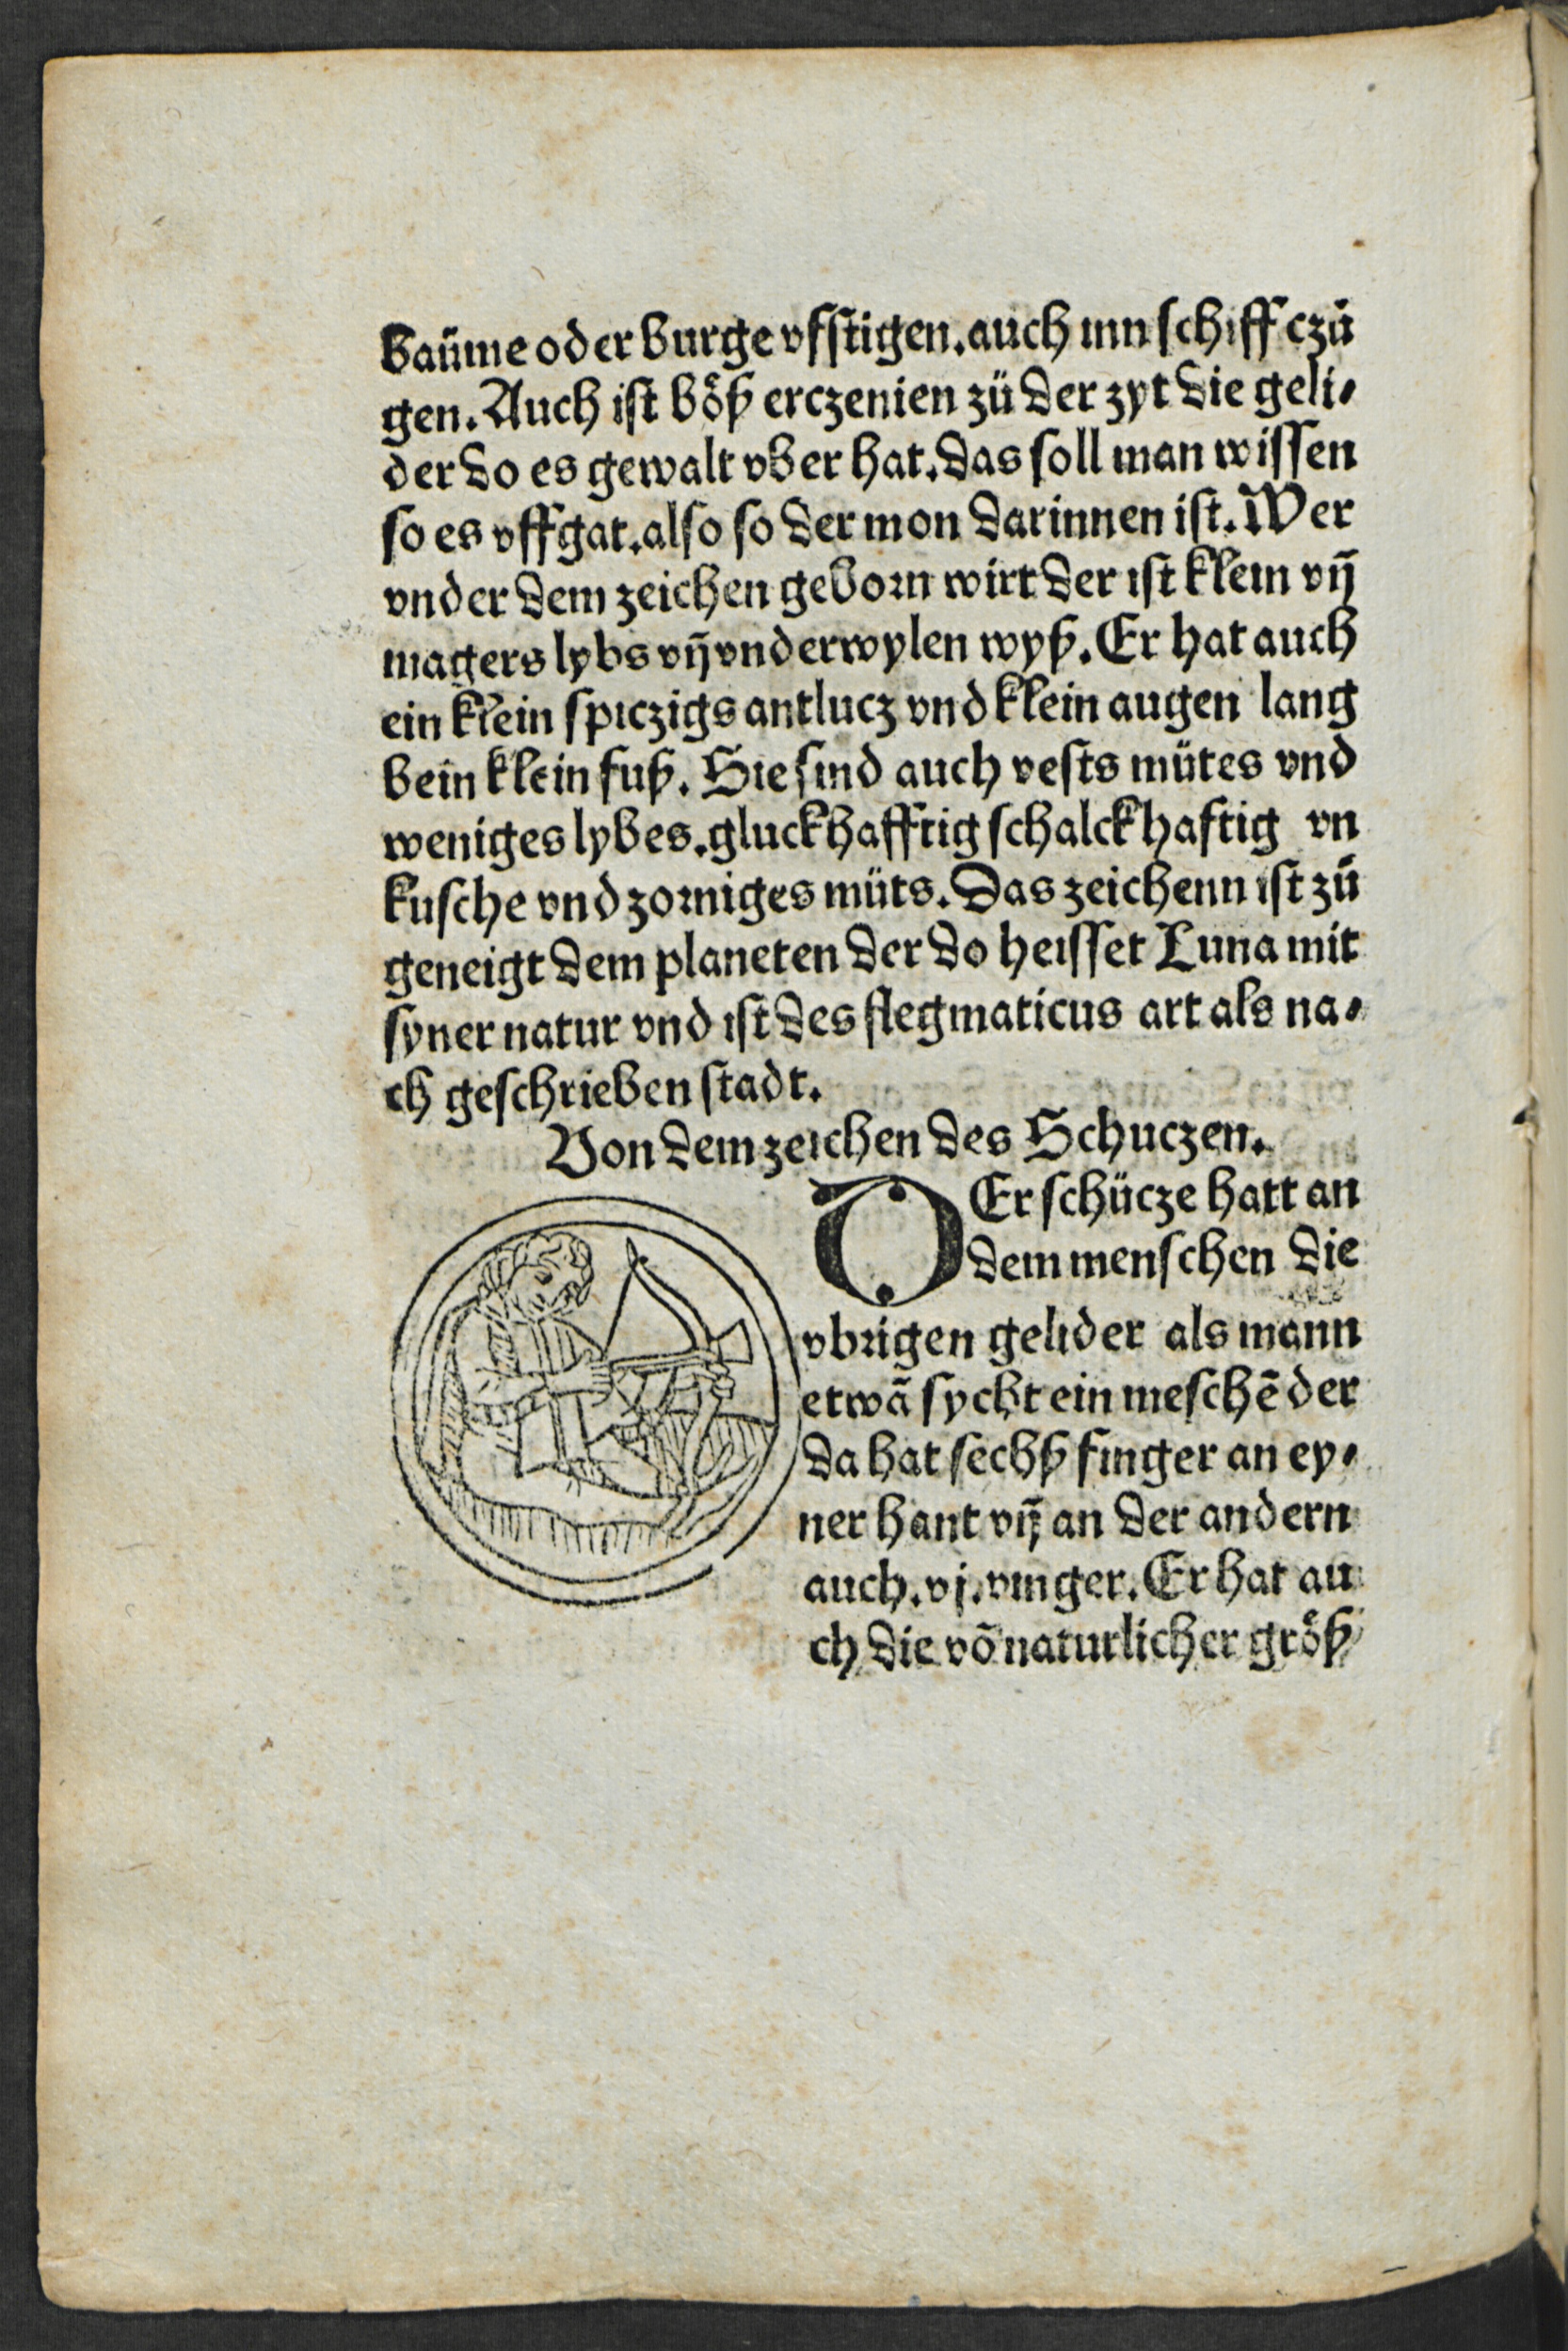 baüme oder burge vfstigen. auch inn schiff czü
gen. Auch ist böß erczenien zü der zyt die geli⸗
der do es gewalt vber hat. das soll man wissen
so es vffgat. also so der mon darinnen ist. Wer
vnder dem zeichen geborn wirt der ist klein vn̄
magers lybs vn̄ vnderwylen wyß. Er hat auch
ein klein spiczigs antlucz vnd klein augen lang
bein klein fuß. Sie sind auch vests mütes vnd
weniges lybes. gluckhafftig schalckhaftig vn
kusche vnd zorniges müts. Das zeichenn ist zü
geneigt dem planeten der do heisset Luna mit
syner natur vnd ist des flegmaticus art als na⸗
ch geschrieben stadt.
Von dem zeichen des Schuczen.
DEr schücze hatt an
dem menschen die
vbrigen gelider als mann
etwā sycht ein meschē der
da hat sechß finger an ey⸗
ner hant vn̄ an der andern
auch .vj. vinger. Er hat au
ch die vō naturlicher größ